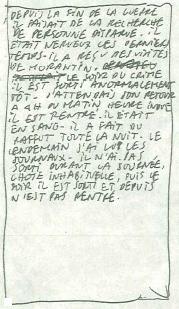 DEPUIS LA FIN DE LA GUERRE
IL FAISAIT DE LA RECHERCHE
DE PERSONNE DISPARUE. IL
ETAIT NERVEUX CES DERNIERS
TEMPS. IL A RECU DES VISITES
DE MORANTIN.
LE SOIR DU CRIME
IL EST SORTI ANORMALEMENT
TOT. J'ATTENDAIS SON RETOUR
A 4H DU MATIN HEURE INDUE
IL EST RENTRE. IL ETAIT
EN SANG. IL A FAIT DU
RAFFUT TOUTE LA NUIT. LE
LENDEMAIN J'AI LU LES
JOURNAUX. IL N'AI PAS
SORTI DURANT LA JOURNEE,
CHOSE INHABITUELLE, PUIS LE
SOIR IL EST SORTI ET DEPUIS
N'EST PAS RENTRE.